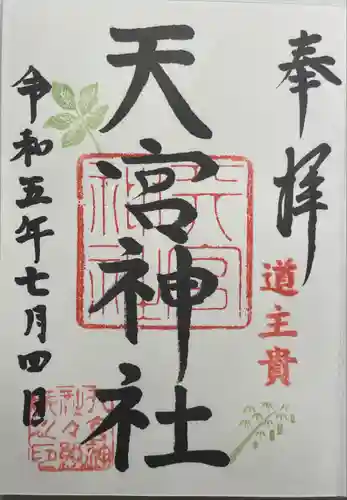 奉拝
道主貴
天宮神社
令和五年七月四日